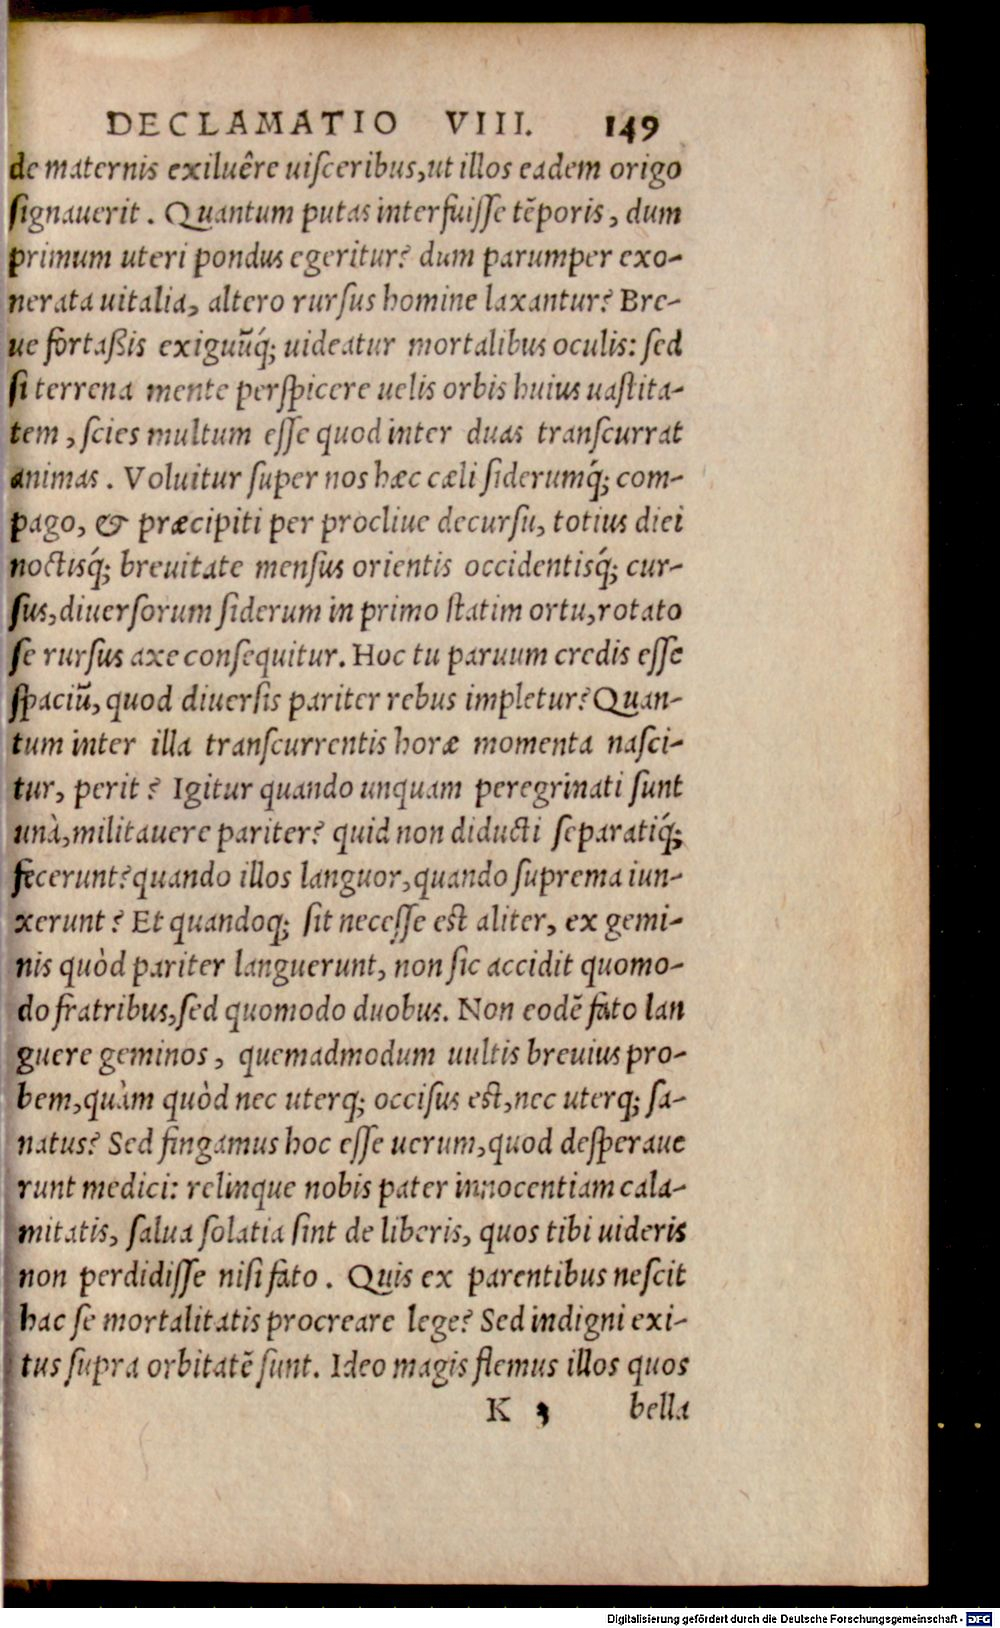 DECLAMATIO VIII. 149
de maternis exiluêre uiſceribus, ut illos eadem origo
ſignauerit. Quantum putas interfuiſſe tēporis, dum
primum uteri pondus egeritur? dum parumper exo-
nerata uitalia, altero rurſus homine laxantur? Bre-
ue fortaßis exiguūq́; uideatur mortalibus oculis: ſed
ſi terrena mente perſpicere uelis orbis huius uaſtita-
tem, ſcies multum eſſe quod inter duas tranſcurrat
animas. Voluitur ſuper nos hæc cæli ſiderumq́; com-
pago, & præcipiti per procliue decurſu, totius diei
noctisq́; breuitate menſus orientis occidentisq́; cur-
ſus, diuerſorum ſiderum in primo ſtatim ortu, rotato
ſe rurſus axe conſequitur. Hoc tu paruum credis eſſe
ſpaciū, quod diuerſis pariter rebus impletur? Quan-
tum inter illa tranſcurrentis horæ momenta naſci-
tur, perit? Igitur quando unquam peregrinati ſunt
unà, militauere pariter? quid non diducti ſeparatiq́;
fecerunt? quando illos languor, quando ſuprema iun-
xerunt? Et quandoq; ſit neceſſe eſt aliter, ex gemi-
nis quòd pariter languerunt, non ſic accidit quomo-
do fratribus, ſed quomodo duobus. Non eodē fato lan
guere geminos, quemadmodum uultis breuius pro-
bem, quàm quòd nec uterq; occiſus eſt, nec uterq; ſa-
natus? Sed fingamus hoc eſſe uerum, quod deſperaue
runt medici: relinque nobis pater innocentiam cala-
mitatis, ſalua ſolatia ſint de liberis, quos tibi uideris
non perdidiſſe niſi fato. Quis ex parentibus neſcit
hac ſe mortalitatis procreare lege? Sed indigni exi-
tus ſupra orbitatē ſunt. Ideo magis flemus illos quos
K 3 bella
Digitalisierung gefördert durch die Deutsche Forschungsgemeinschaft - DFG